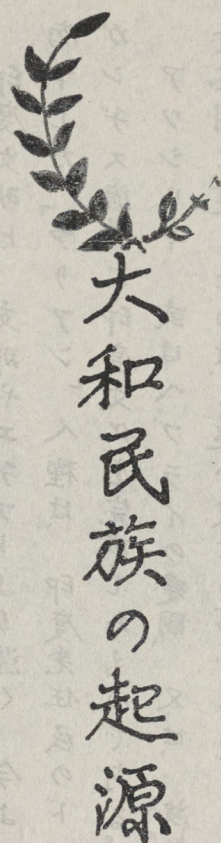 大和民族の起源